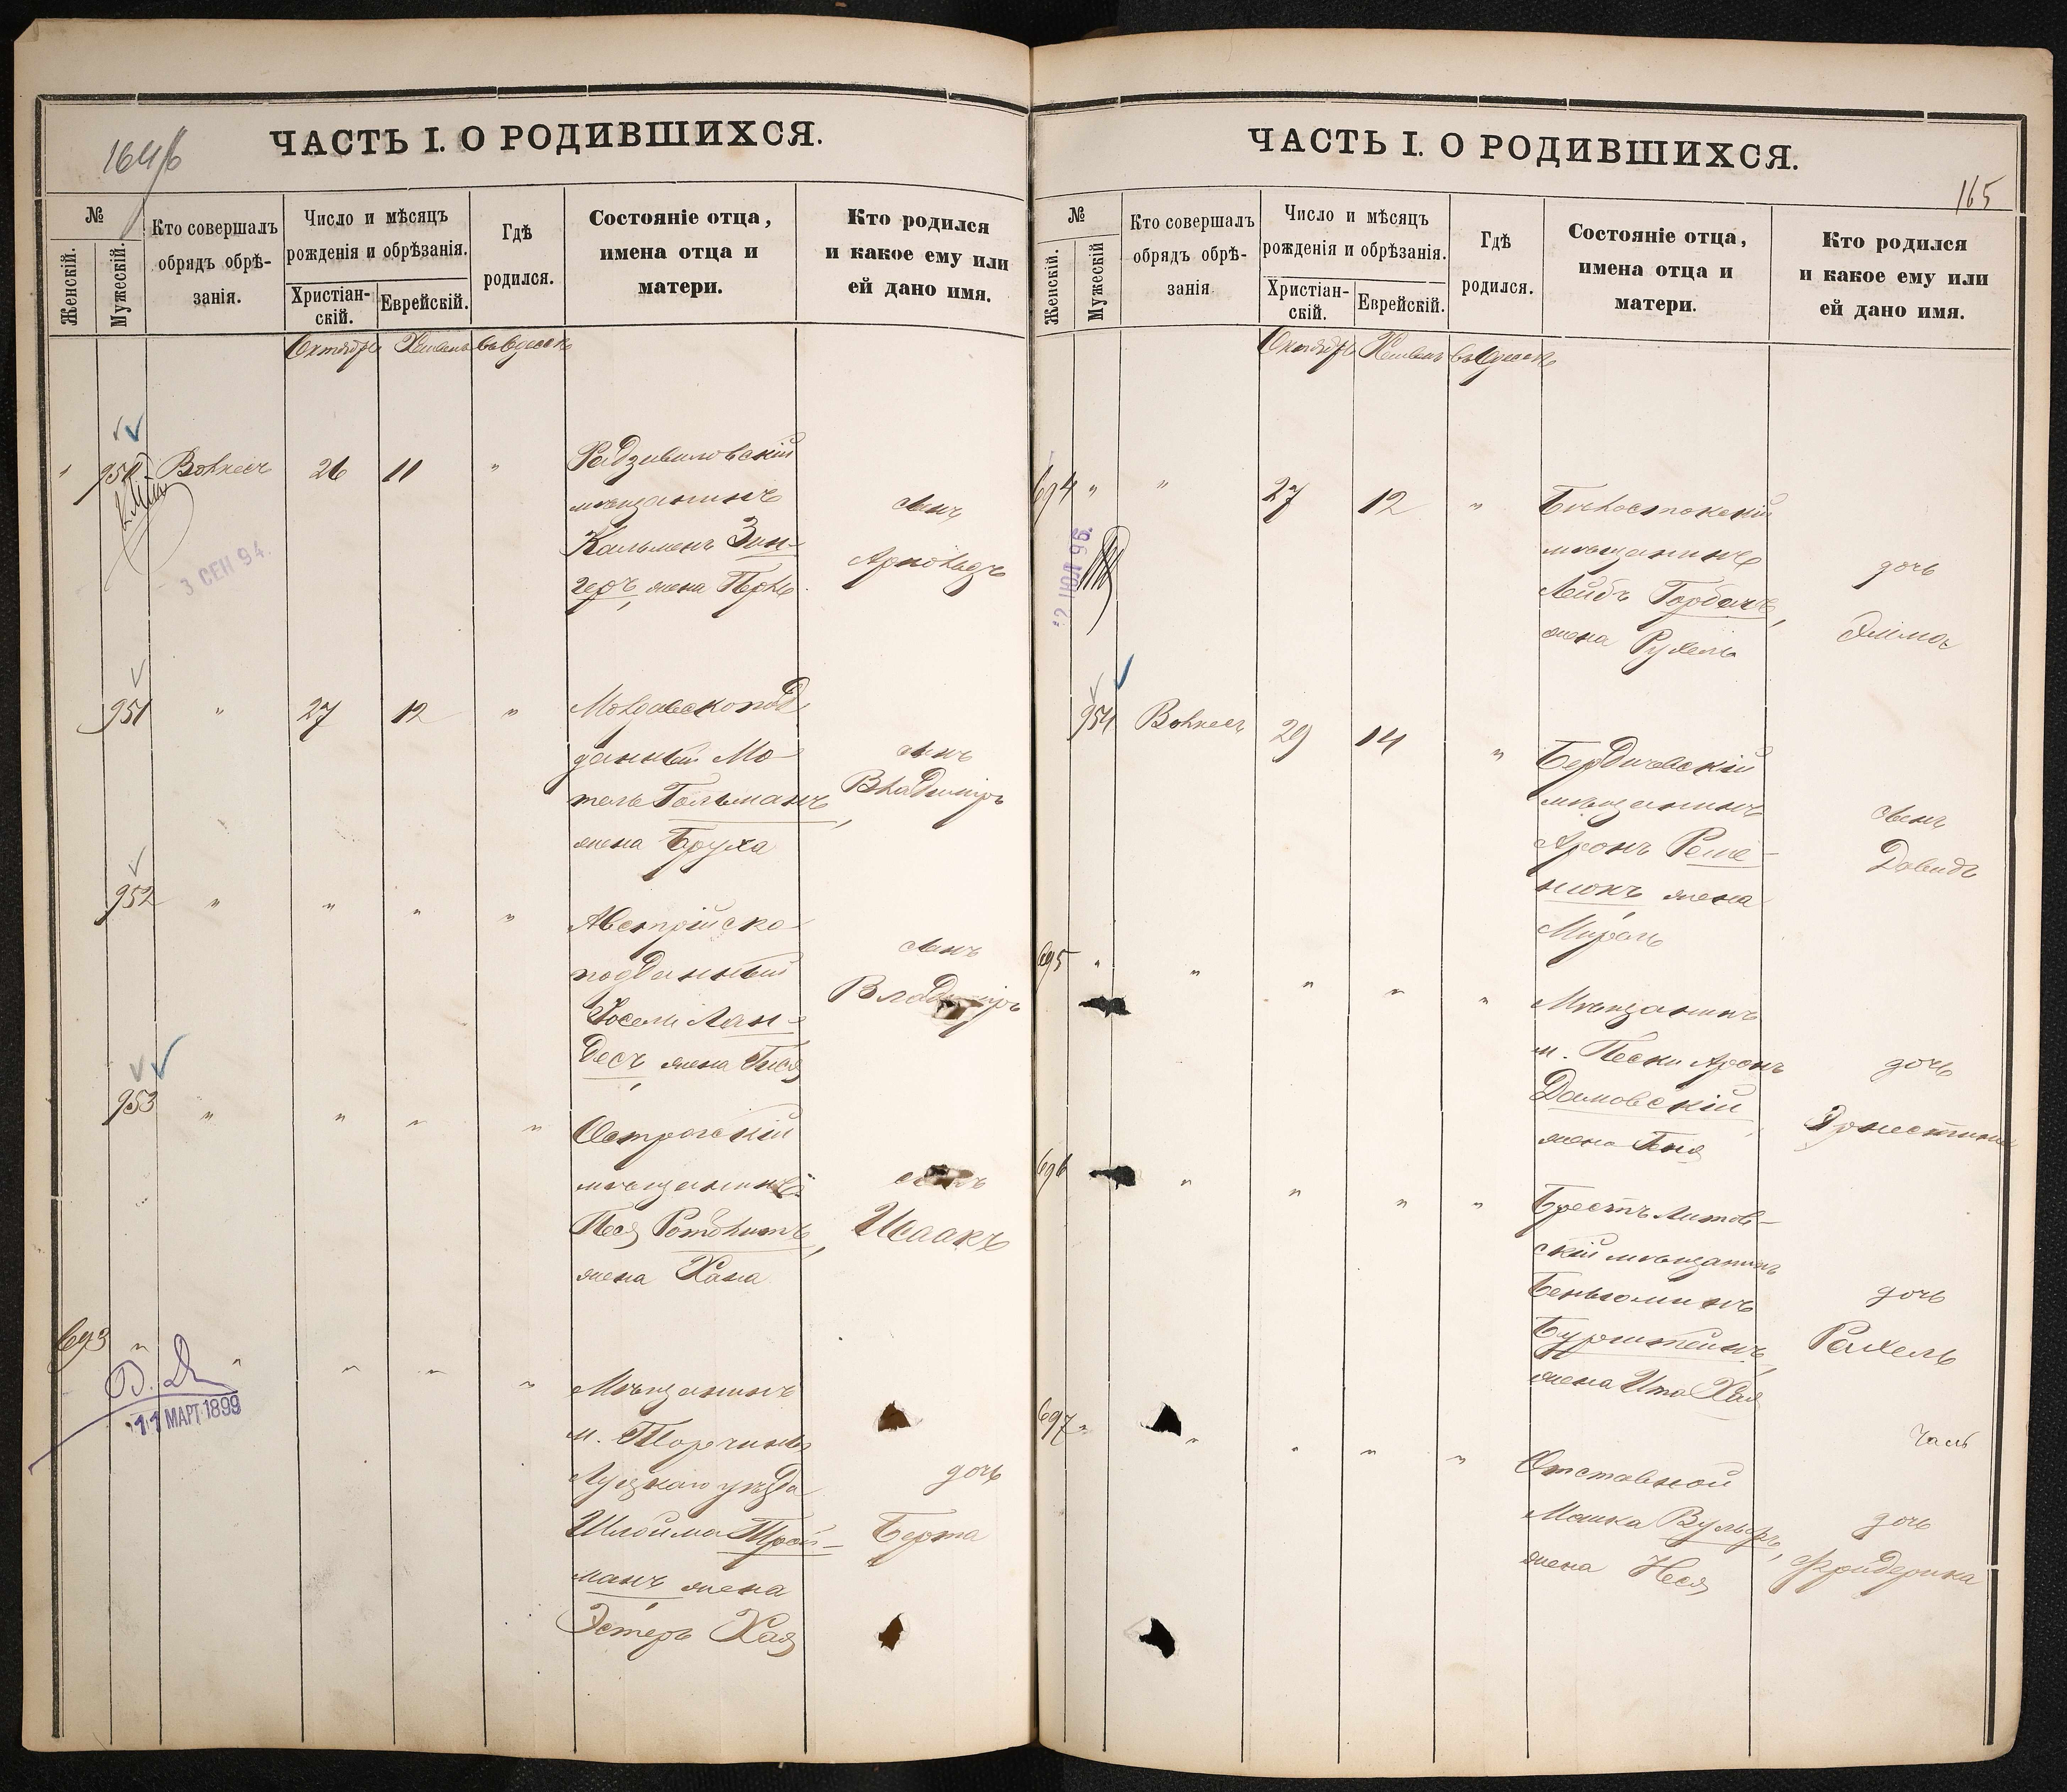 164/б
ЧАСТЬ I. О РОДИВШИХСЯ.
№
Женскій.
Мужескій.
Кто совершалъ
обрядъ обрѣ-
занія.
Число и мѣсяцъ
рожденія и обрѣзанія.
Христіан-
скій.
Еврейскій.
Гдѣ
родился.
Состояніе отца,
имена отца и
матери.
Кто родился
и какое ему или
ей дано имя.
Октябрь Хешванъ въ Одессѣ
950 Вольнесъ 26 11 "
Радзивиловскій
мѣщанинъ
Кальменъ Зин-
геръ, жена Перль
сынъ
Арнольдъ
3 СЕН 94.
951 " 27 12 "
Молдавскопод
данный Мо-
тель Гольманъ,
жена Бруха
сынъ
Владиміръ
952 " " " "
Австрійско-
подданный
Іосель Лан-
десъ, жена Гися
сынъ
Владиміръ
953 " " " "
Острогскій
мѣщанинъ
Песя Ротблитъ,
жена Хана
сынъ
Исаакъ
693 " " " " "
Мѣщанинъ
м. Торчина
Луцкаго уѣзда
Шлойма Трой-
манъ, жена
Эстеръ Хая
дочь
Берта
11 МАРТ 1899
165
ЧАСТЬ I. О РОДИВШИХСЯ.
№
Женскій.
Мужескій
Кто совершалъ
обрядъ обрѣ-
занія
Число и мѣсяцъ
рожденія и обрѣзанія.
Христіан-
скій.
Еврейскій.
Гдѣ
родился.
Состояніе отца,
имена отца и
матери.
Кто родился
и какое ему или
ей дано имя.
Октябрь Хешванъ въ Одессѣ
694 " " 27 12 "
Бѣлостокскій
мѣщанинъ
Лейбъ Горбачъ,
жена Рухель
дочь
Эмма
2 ІЮЛ 96.
954 Вольнесъ 29 14 "
Бердичевскій
мѣщанинъ
Аронъ Реше-
нюкъ, жена
Мирель
сынъ
Давидъ
695 " " " " "
Мѣщанинъ
м. Пески Аронъ
Дамовскій,
жена Геня
дочь
Эрнестина
696 " " " "
Брестъ Литов-
скій мѣщанинъ
Беньюминъ
Бурштейнъ,
жена Ита Хая
дочь
Рахель
697 " " " " "
Отставной
Мошка Вульфъ,
жена Неся
дочь
Фридерика